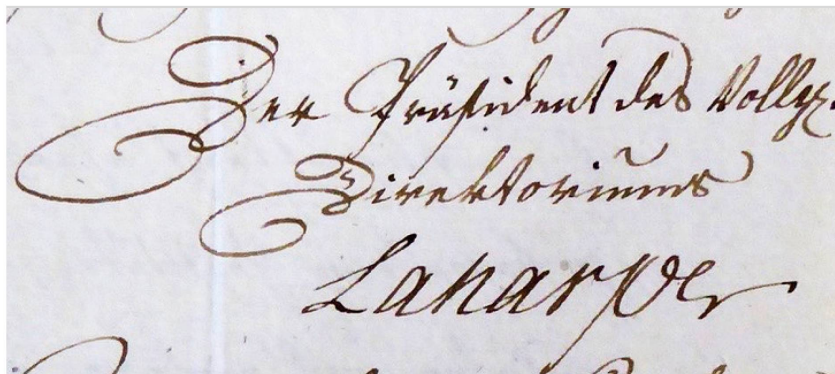 Der Präsident des Vollz.
Direktoriums
Laharpe